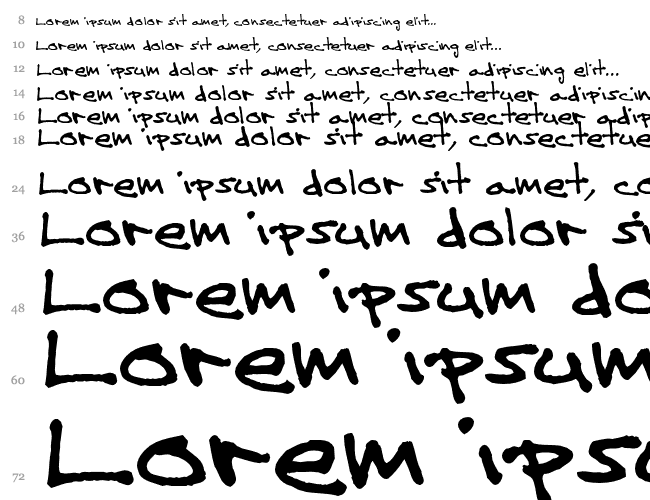 8 Lorem ipsum dolor sit amet, consectetuer adipiscing elit...
10 Lorem ipsum dolor sit amet, consectetuer adipiscing elit...
12 Lorem ipsum dolor sit amet, consectetuer adipiscing elit...
14 Lorem ipsum dolor sit amet, consectetuer adipiscin
16 Lorem ipsum dolor sit amet, consectetuer adip
18 Lorem ipsum dolor sit amet, consectetue
24 Lorem ipsum dolor sit amet, co
36 Lorem ipsum dolor si
48 Lorem ipsum do
60 Lorem ipsum
72 Lorem ipso